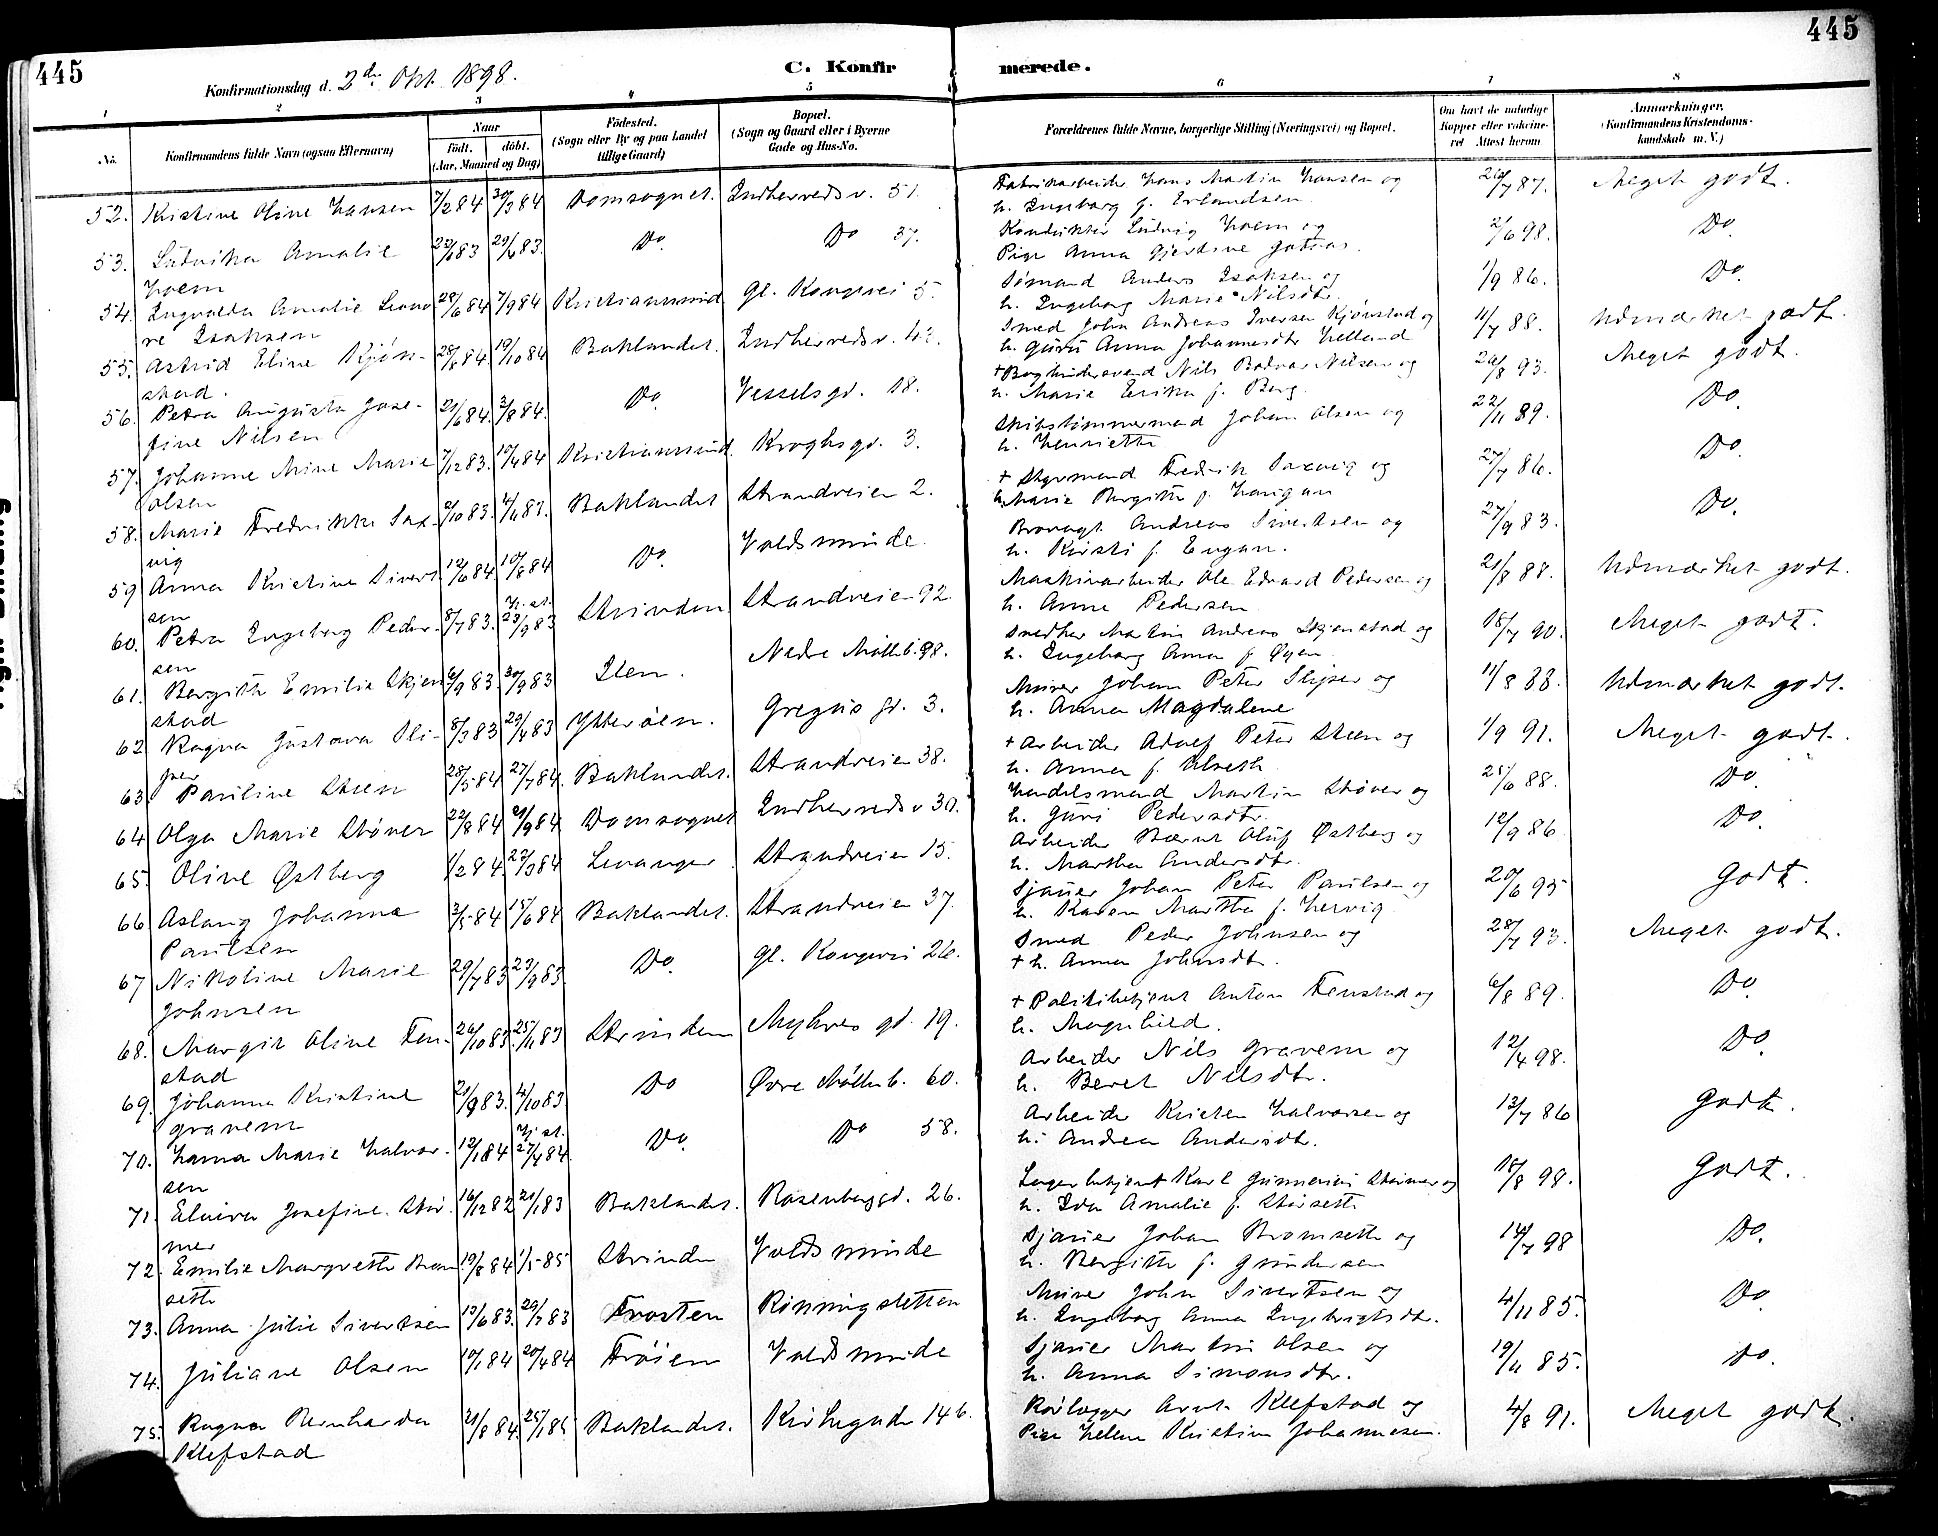 445
445
Konfirmationsdag d. 2den Okt. 1898.
C. Konfirmerede.
1 2 3 4 5 6 7 8
No.
Konfirmandens fulde Navn (ogsaa Efternavn)
Naar
födt. döbt.
(Aar, Maaned og Dag)
Födested.
(Sogn eller By og paa Landet
tillige Gaard)
Bopæl.
(Sogn og Gaard eller i Byerne
Gade og Hus-No.
Forældrenes fulde Navne, borgerlige Stilling (Næringsvei) og Bopæl.
Om havt de naturlige
Kopper eller vaccineret
Attest herom
Anmærkninger.
(Konfirmandens Kristendomskundskab
m. V.)
52. Kristine Oline Hansen 7/2 84 30/3 84 Domsognet. Indherredsv. 51. Fabrikarbeider Hans Martin Hansen og 26/7 87. Meget godt.
h. Ingeborg f. Erlandsen
53. Ludvika Amalie 22/1 83 29/4 83. Do. Do 37. Konduktør Ludvig Hoem og 2/6 98. Do.
Hoem Pige Anna Gjertine
54. Ingvalda Amalie Leono 28/6 84 7/9 84 Kristianssund gl. Kongevei 5. Sømand Anders Isaksen og 1/9 86. Do.
re Isaksen h. Ingeborg Marie Nilsdtr.
55. Astrid Eline Kjøn- 28/8 84 19/10 84 Baklandet. Indherredsv. 42. Smed John Andreas Iversen Kjønstad og 11/7 88. Udmærket godt.
stad. h. Guru Anna Johannesdtr Helland
56. Petra Augusta Jose- 21/6 84. 3/8 84. Do. Vesselsgd. 18. + Bogbindersvend Nils Bodvar Nilsen og 29/8 93. Meget godt.
fine Nilsen h. Marie Erika f. Berg.
57. Johanne Mine Marie 7/12 83. 10/4 84 Kristianssund. Kroghsgd. 3. Skibstømmermand Johan Olsen og 22/11 89. Do.
Olsen h. Henriette
58. Marie Fredrikke Sax- 2/10 83. 4/11 83. Baklandet Strandveien 2. + Styrmand Fredrik Saxvig og 27/7 86. Do.
vig h. Marie Bergitte f. Harigan
59 Anna Kristine Sivert 12/6 84 10/8 84 Do. Voldsminde. Brovagt Andreas Sivertsen og 27/9 83. Do.
sen h. Kirsti f. Engan.
60. Petra Ingeborg Peder- 8/7 83. hj. st. 23/9 83 Strinden Strandveien 92. Maskinarbeider Ole Edvard Pedersen og 21/8 88. Udmærket godt.
sen h. Anne Pedersen
61. Bergitte Emilie Skjen 6/9 83. 30/9 83 Ilen. Nedre Møllb. 98. Snedker Martin Andreas Skjenstad og 18/7 90. Meget godt.
stad h. Ingeborg Anna f. Øyen
62 Ragna Gustava Sli- 8/3 83 29/4 83 Ytterøen. Gregus gd. 3. Murer Johan Peter Slipper og 11/8 88. Udmærket godt.
per h. Anna Magdalene
63 Pauline Steen 28/5 84 27/7 84. Baklandet. Strandveien 38. + Arbeider Adolf Peter Steen og 1/9 91. Meget godt.
h. Anna f. Ulseth
64 Olga Marie Støver 22/8 84 21/9 84 Domsognet Indherredsv 30. Handelsmand Martin Støver og 25/6 88. Do.
h. Guri Pedersdtr.
65. Oline Østberg 1/2 84 23/3 84 Levanger. Strandveien 15. Arbeider Bernt Oluf Østberg og 12/9 86. Do.
h. Martha Andersdtr.
66 Aslaug Johanna 3/5 84 15/6 84 Baklandet. Strandveien 37. Sjauer Johan Peter Paulsen og 20/6 95 Godt.
Paulsen h. Karen Martha f. Hervig
67 Nikoline Marie 29/7 83 23/9 83. Do. gl. Kongevei 26. Smed Peder Johnsen og 28/7 93. Meget godt.
Johnsen + h. Anna Johnsdtr.
68. Margit Oline Fen- 26/10 83 25/11 83 Strinden Myhres gd. 19. + Politibetjent Anton Fenstad og 6/8 89. Do.
stad h. Magnhild.
69. Johanna Kristine 21/9 83. 4/10 83 Do Øvre Møllenb. 60. Arbeider Nils Gravem og 12/4 98. Do.
Gravem h. Beret Nilsdtr.
70. Hanna Marie Halvor- 12/1 84 hj. st. 27/4 84 Do. Do 58. Arbeider Kristen Halvorsen og 13/7 86 Godt.
sen h. Andrea Andersdtr.
71. Elvira Josefine Stør- 16/12 82 21/1 83 Baklandet. Rosenborggd. 26. Lagerbetjent Karl Størmer og 18/8 98. Godt.
mer h. Ida Amalie f. Størseth
72. Emilie Margrethe Brom 19/8 84 1/5 85 Strinden Voldsminde Sjauer Johan Bromseth og 14/7 98 Do.
seth h. Bergitte f. Gundersen
73. Anna Julie Sivertsen 13/6 83. 29/7 83 Frosten Rønningsletten Murer John Sivertsen og 4/11 85. Do.
h. Ingeborg Anna Ingebrigtsdtr.
74. Juliane Olsen 10/1 84 20/4 84 Frøien Voldsminde Sjauer Martin Olsen og 19/11 85. Do.
h. Anna Simonsdtr.
75. Ragna Bernharda 21/8 84. 25/1 85 Baklandet. Kirkegaden 14 b. Rørlægger Arnt Klefstad og 4/8 91. Meget godt.
Klefstad Pige Helene Kristine Johannesen.